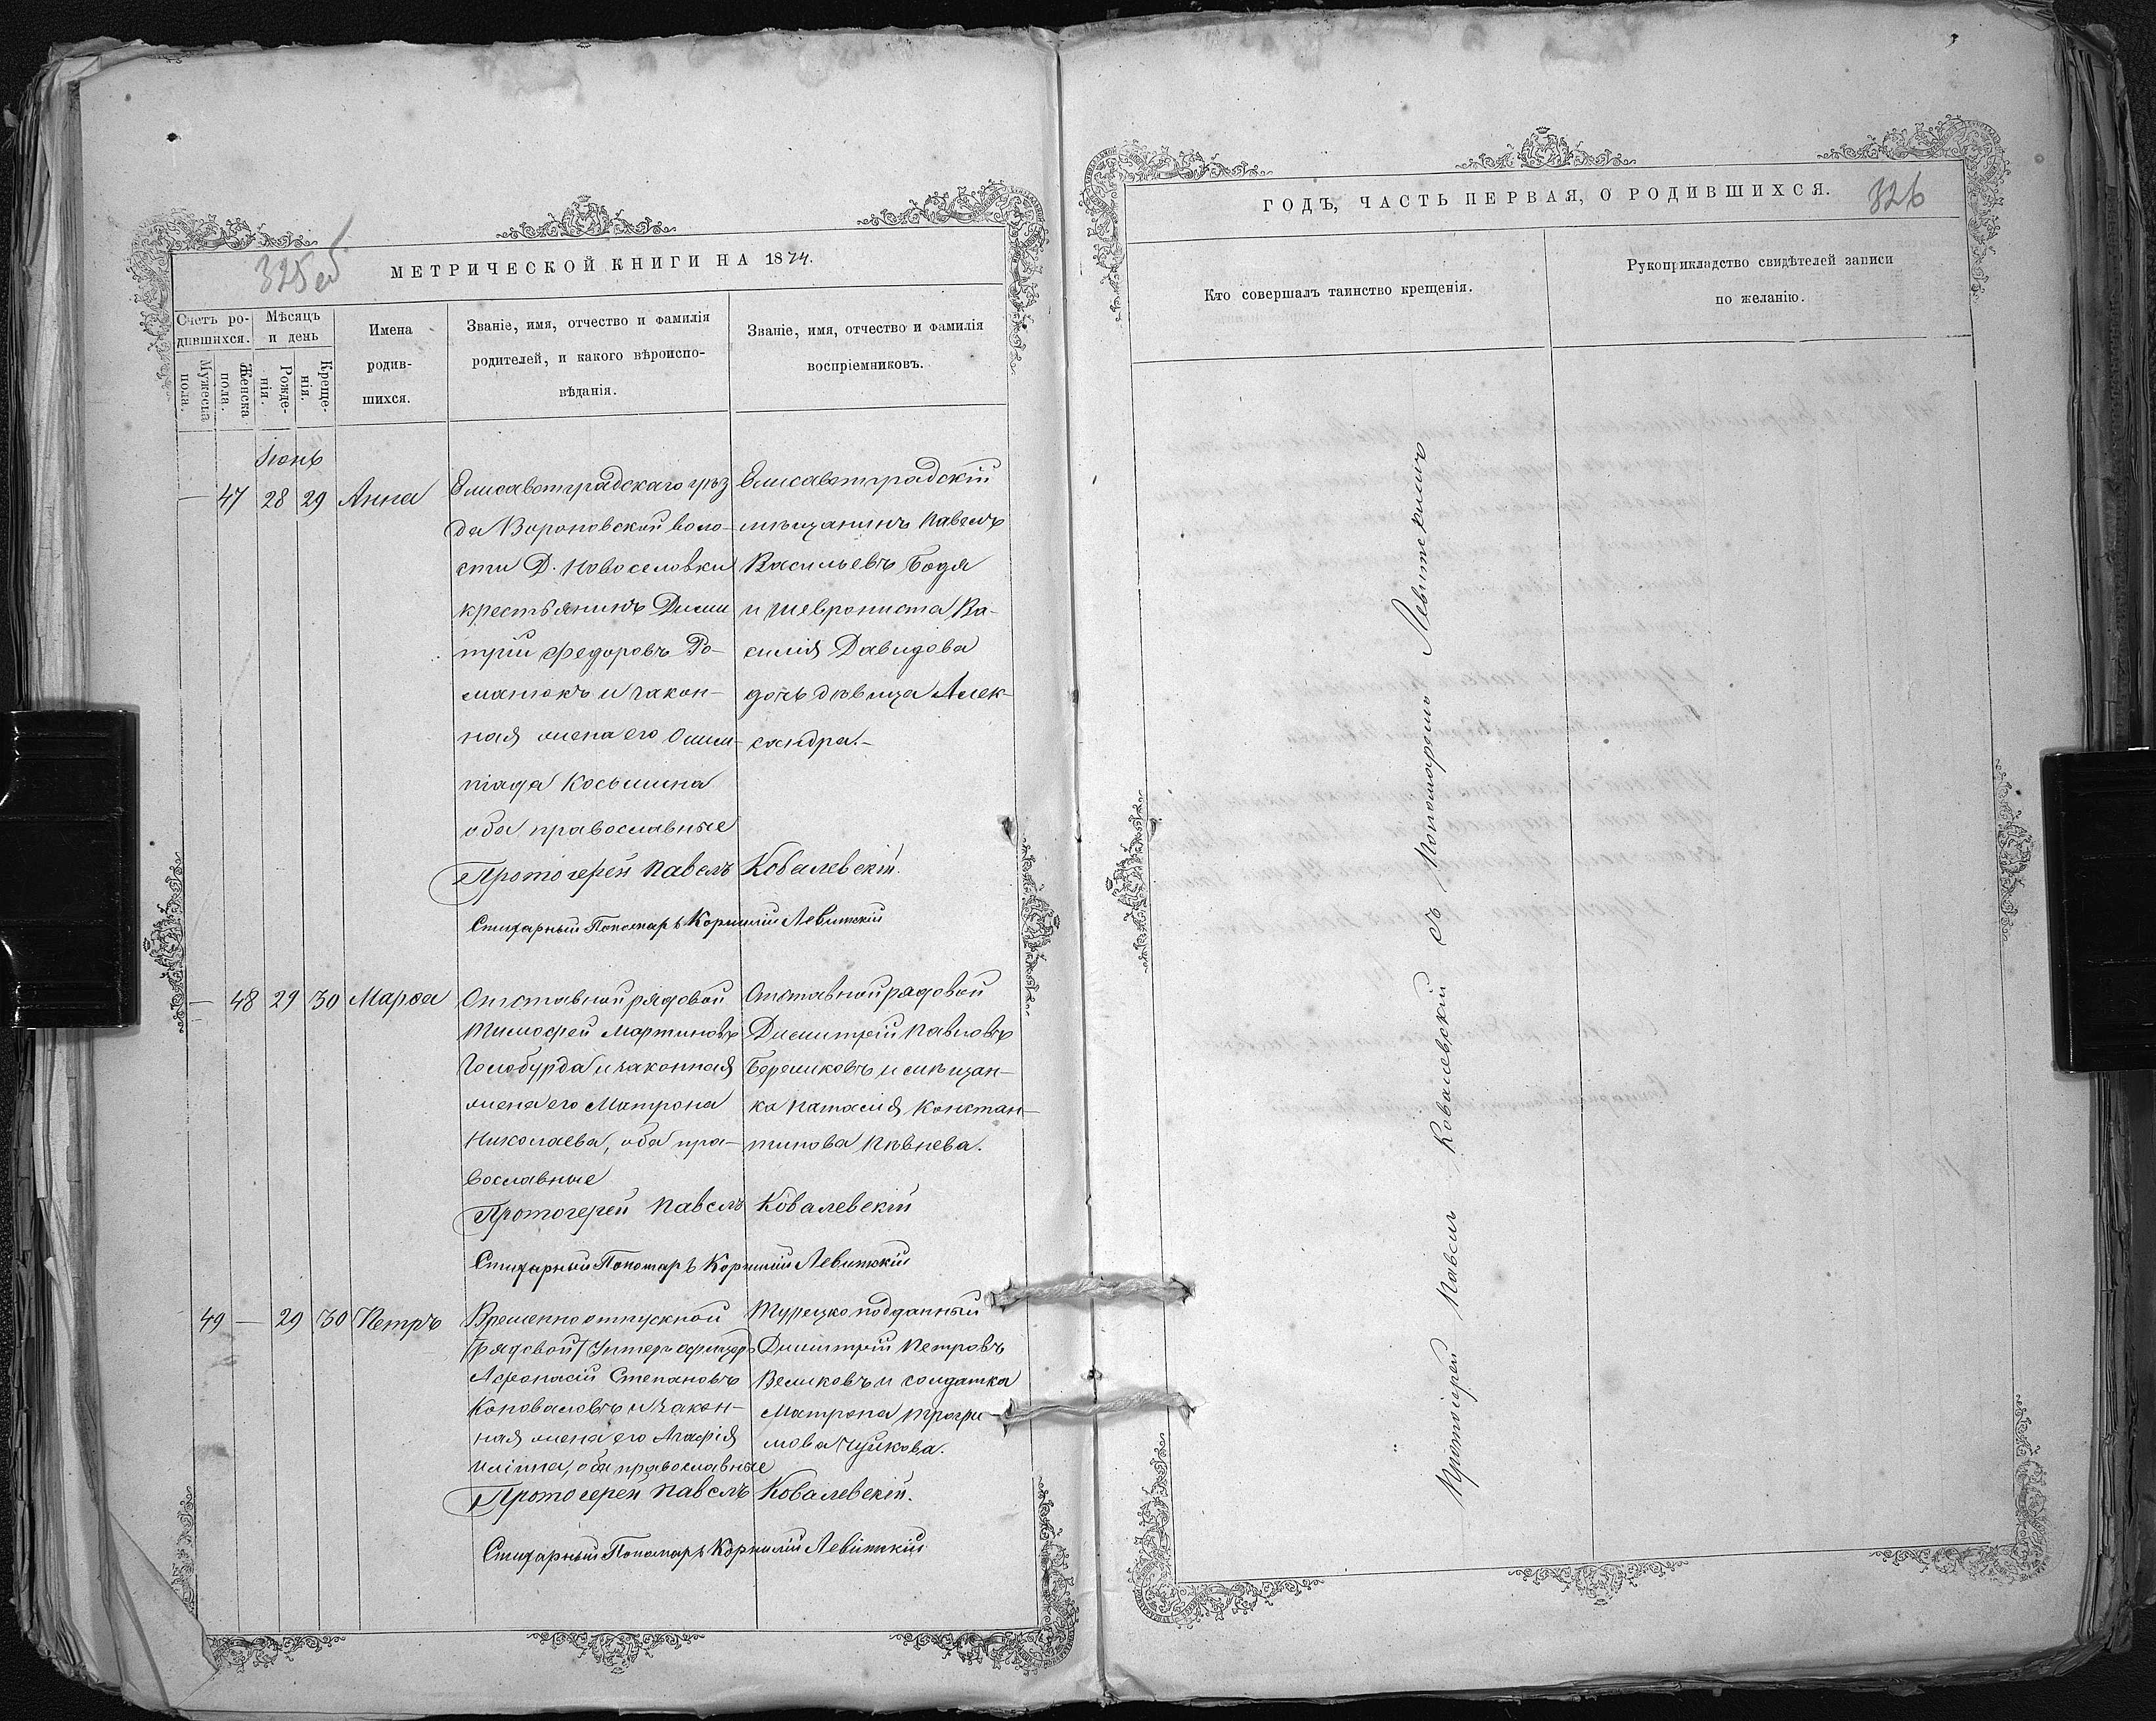 325 об
МЕТРИЧЕСКОЙ КНИГИ НА 1874.
Счетъ ро-
дившихся.
Мужеска
пола.
Женска
пола.
Мѣсяцъ
и день
Рожде-
нія.
Креще-
нія.
Имена
родив-
шихся.
Званіе, имя, отчество и фамилія
родителей, и какого вѣроиспо-
вѣданія.
Званіе, имя, отчество и фамилія
воспріемниковъ.
Іюнь
— 47 28 29 Анна
Елисаветградскаго уѣз
да Вороновской воло-
сти Д. Новоселовки
крестьянинъ Дими
трій Федоровъ Ро-
манюкъ и закон-
ная жена его Олим-
піада Косьмина
оба православные
Елисаветградскій
мѣщанинъ Павелъ
Васильевъ Бодя
и шеврониста Ва-
силія Давидова
дочь дѣвица Алек-
сандра.-
Протоіерей Павелъ Ковалевскій.
Стихарный Пономарь Корнилій Левитскій
— 48 29 30 Марѳа
Отставной рядовой
Тимофей Мартиновъ
Голобурда и законная
жена его Матрона
Николаева, оба пра-
вославные
Отставной рядовой
Димитрій Павловъ
Береликовъ и мѣщан-
ка Наталія Констан-
тинова Пѣвнева.
Протоіерей Павелъ Ковалевскій
Стихарный Пономарь Корнилій Левитскій
49 — 29 30 Петръ
Временно отпускной
рядовой/Унтеръ офицеръ
Афонасій Степановъ
Коноваловъ и закон-
ная жена его Агафія
Иліина, оба православные
Турецко подданный
Димитрій Петровъ
Великовъ и солдатка
Матрона Трофи-
мова Чуйкова.
Протоіерей Павелъ Ковалевскій.
Стихарный Пономарь Корнилій Левитскій
ГОДЪ, ЧАСТЬ ПЕРВАЯ, О РОДИВШИХСЯ.
326
Кто совершалъ таинство крещенія.
Рукоприкладство свидѣтелей записи
по желанію.
Протоіерей Павелъ Ковалевскій съ Пономаремъ Левитскимъ